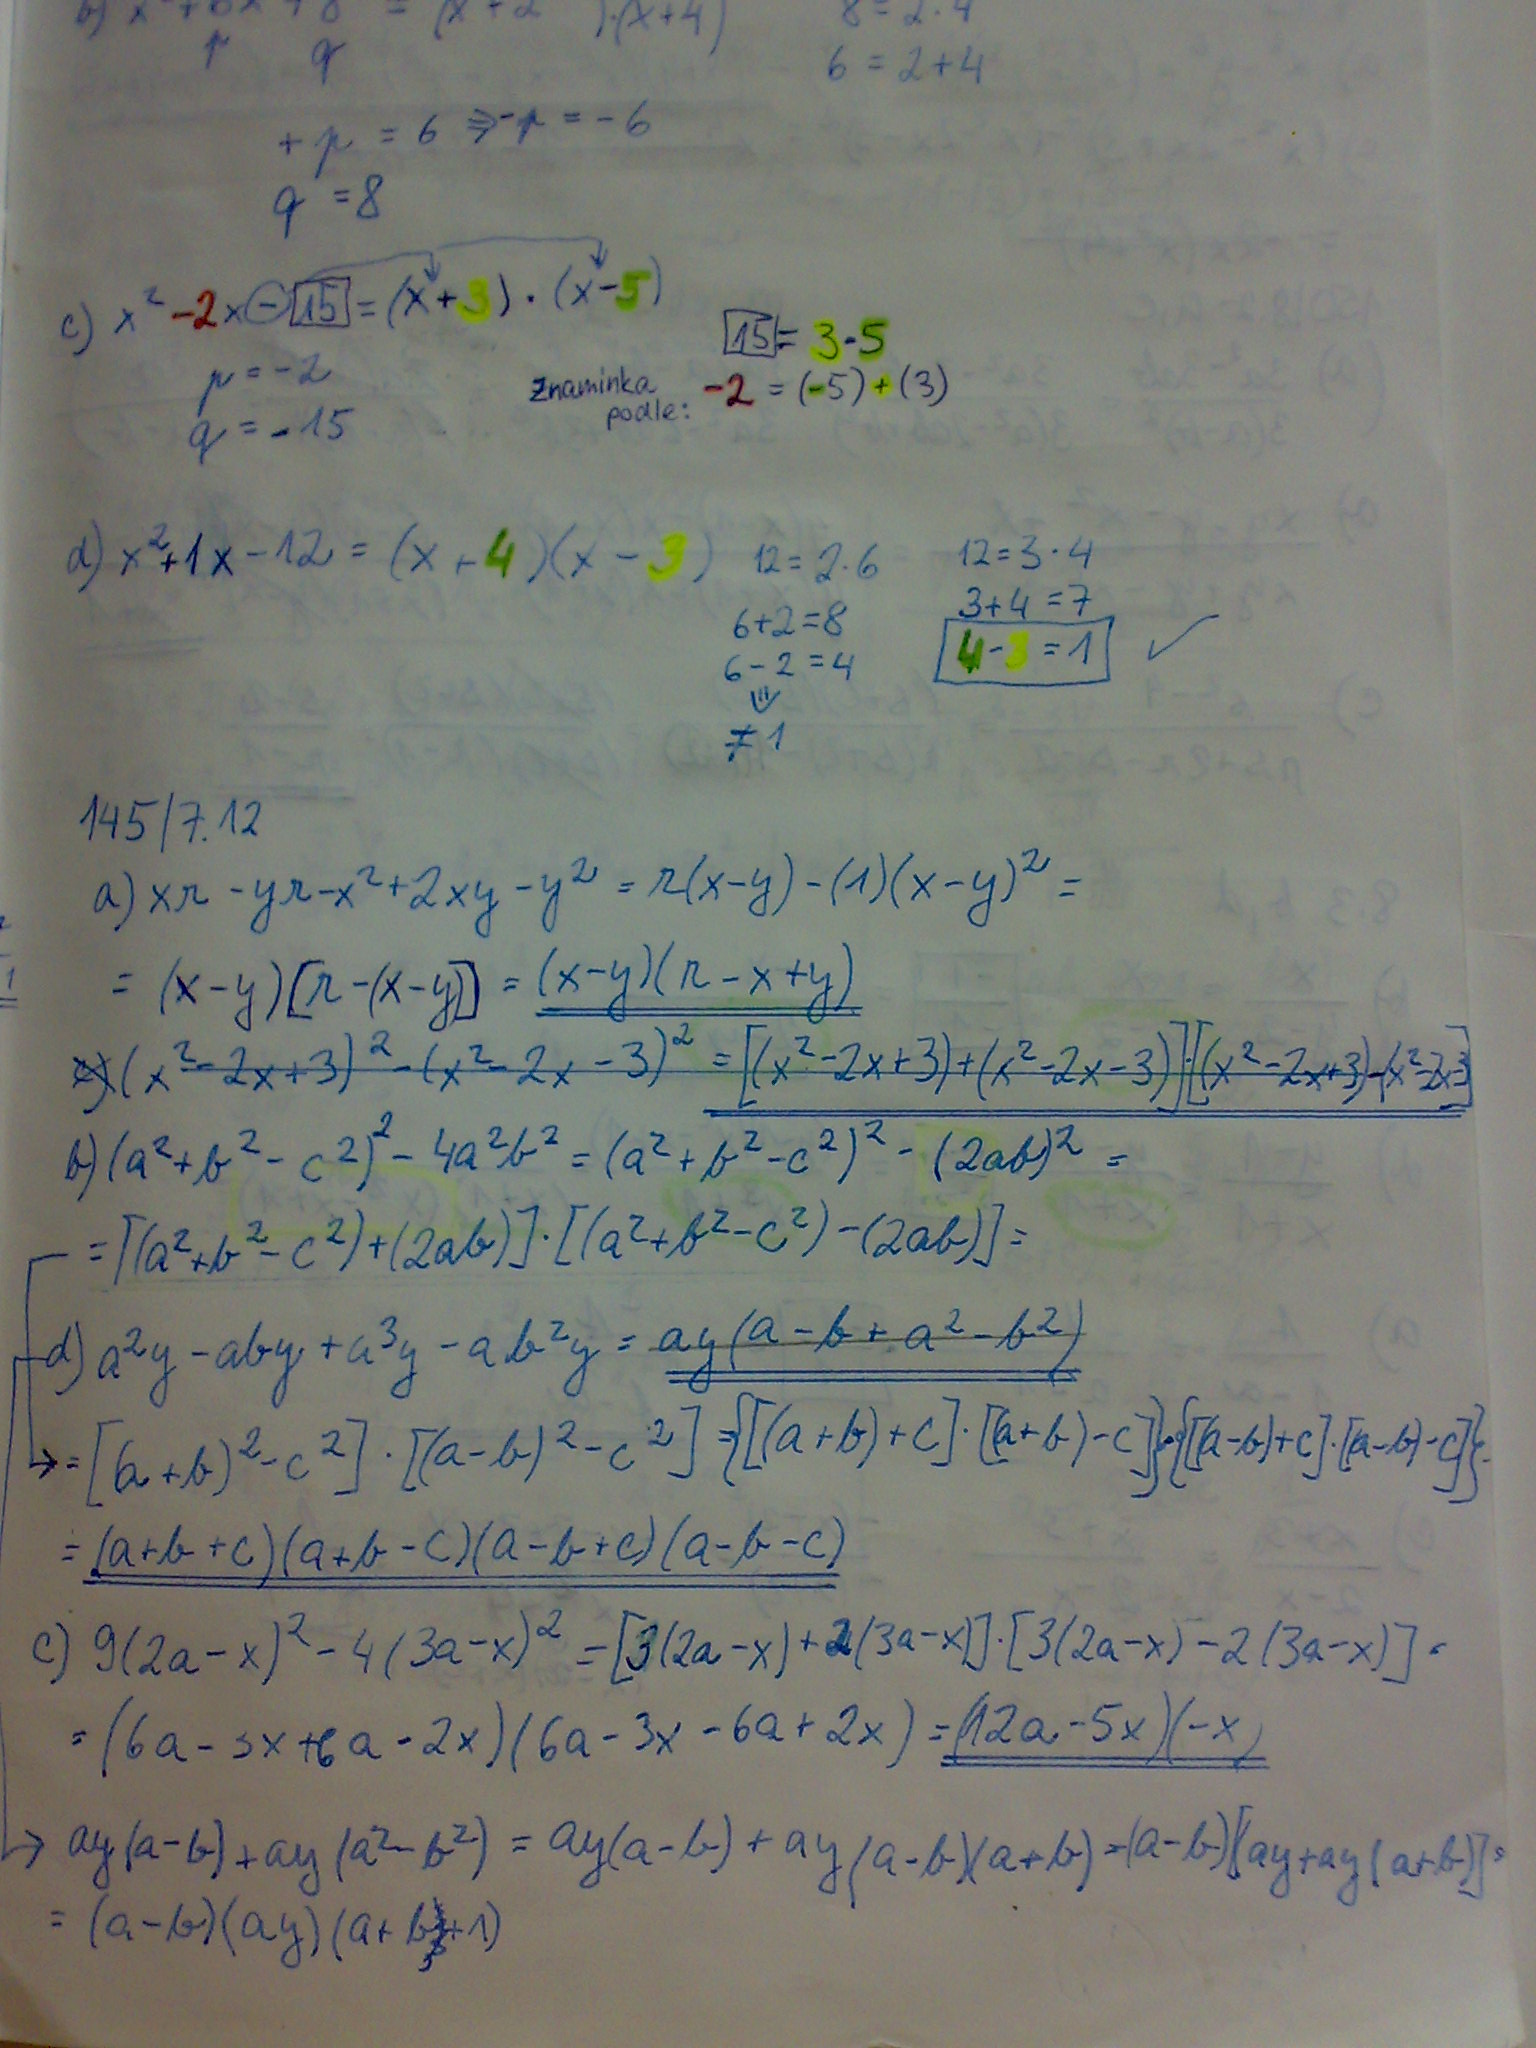 b) x² + 6x + 8 = (x + 2).(x + 4) 8 = 2.4
p q 6 = 2 + 4
+p = 6 ⇒ -p = -6
q = 8
c) x² - 2x - 15 = (x + 3) · (x - 5)
15 = 3·5
p = -2
znaminka podle: -2 = (-5) + (3)
q = -15
d) x² + 1x - 12 = (x + 4)(x - 3) 12 = 2.6 12 = 3·4
6 + 2 = 8 3 + 4 = 7
6 - 2 = 4 4 - 3 = 1 ✓
⇓
≠ 1
145/7.12
a) xr - yr - x² + 2xy - y² = r(x - y) - (1)(x - y)² =
= (x - y)[r - (x - y)] = (x - y)(r - x + y)
c) (x² - 2x + 3)² - (x² - 2x - 3)² = [(x² - 2x + 3) + (x² - 2x - 3)]·[(x² - 2x + 3) - (x² - 2x - 3]
b) (a² + b² - c²)² - 4a²b² = (a² + b² - c²)² - (2ab)² =
= [(a² + b² - c²) + (2ab)]·[(a² + b² - c²) - (2ab)] =
d) a²y - aby + a³y - ab²y = ay(a - b + a² - b²)
→ = [(a + b)² - c²]·[(a - b)² - c²] = {[(a + b) + c]·[(a + b) - c]}·{[(a - b) + c]·[(a - b) - c]} =
= (a + b + c)(a + b - c)(a - b + c)(a - b - c)
c) 9(2a - x)² - 4(3a - x)² = [3(2a - x) + 2(3a - x)]·[3(2a - x) - 2(3a - x)] =
= (6a - 3x + 6a - 2x)(6a - 3x - 6a + 2x) = (12a - 5x)(-x)
→ ay(a - b) + ay(a² - b²) = ay(a - b) + ay(a - b)(a + b) = (a - b)[ay + ay(a + b)] =
= (a - b)(ay)(a + b + 1)